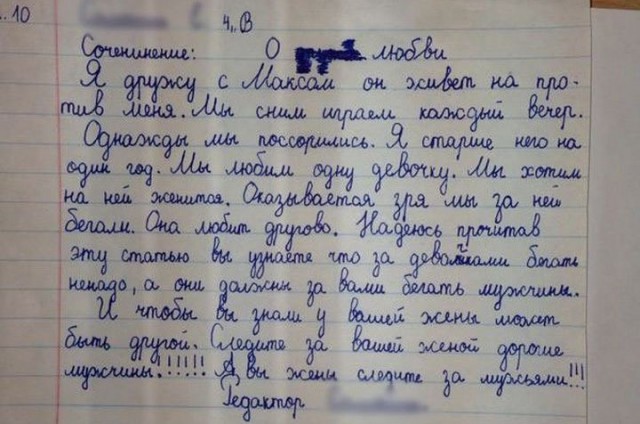 10
4„В
Соченинение: О любви
Я дружу с Максом он живет на про-
тив меня. Мы сним играем каждый вечер.
Однажды мы поссорились. Я старше него на
один год. Мы любим одну девочку. Мы хотим
на ней женится. Оказывается зря мы за ней
бегали. Она любит другово. Надеюсь прочитав
эту статью вы узнаете что за девочками бегать
ненадо, а они должны за вами бегать мужчины.
И чтобы вы знали у вашей жены может
быть другой. Следите за вашей женой дорогие
мужчины!!!!!! А вы жены следите за мужьями!!!
Редактор